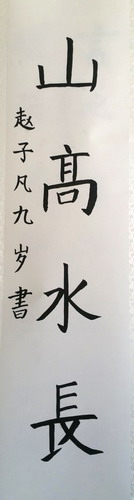 山高水長
赵子凡九岁書